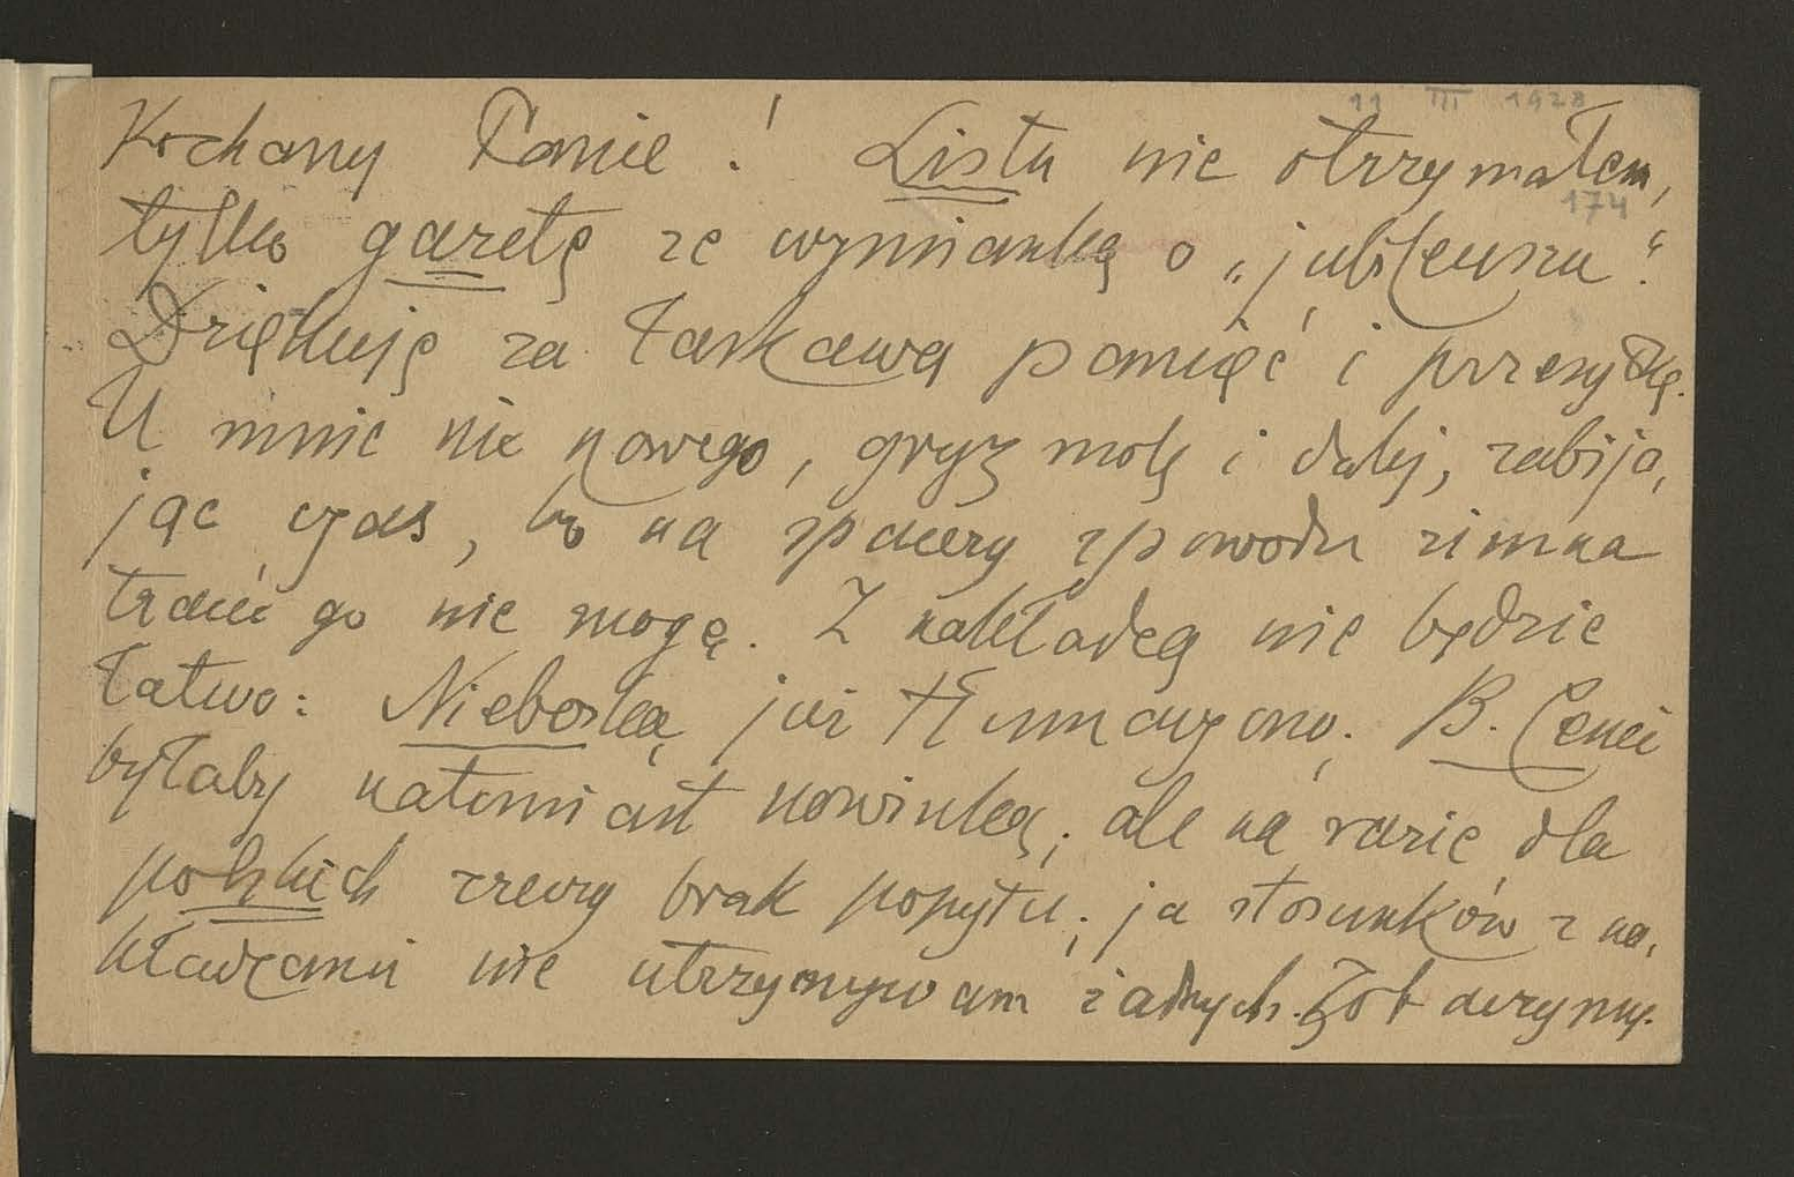 11 III 1928
Kochany Panie! Listu nie otrzymałem,
174
tylko gazetę ze wzmianką o „jubileuszu”.
Dziękuję za łaskawą pamięć i przesyłkę.
U mnie nic nowego, gryzmolę i dalej, zabija,
jąc czas, bo na spacery z powodu zimna
tracić go nie mogę. Z nakładcą nie będzie
łatwo: Nieboską już tłumaczono. B. Cenci
byłaby natomiast nowinką; ale na razie dla
polskich rzeczy brak popytu; ja stosunków z na,
kładcami nie utrzymywam żadnych.